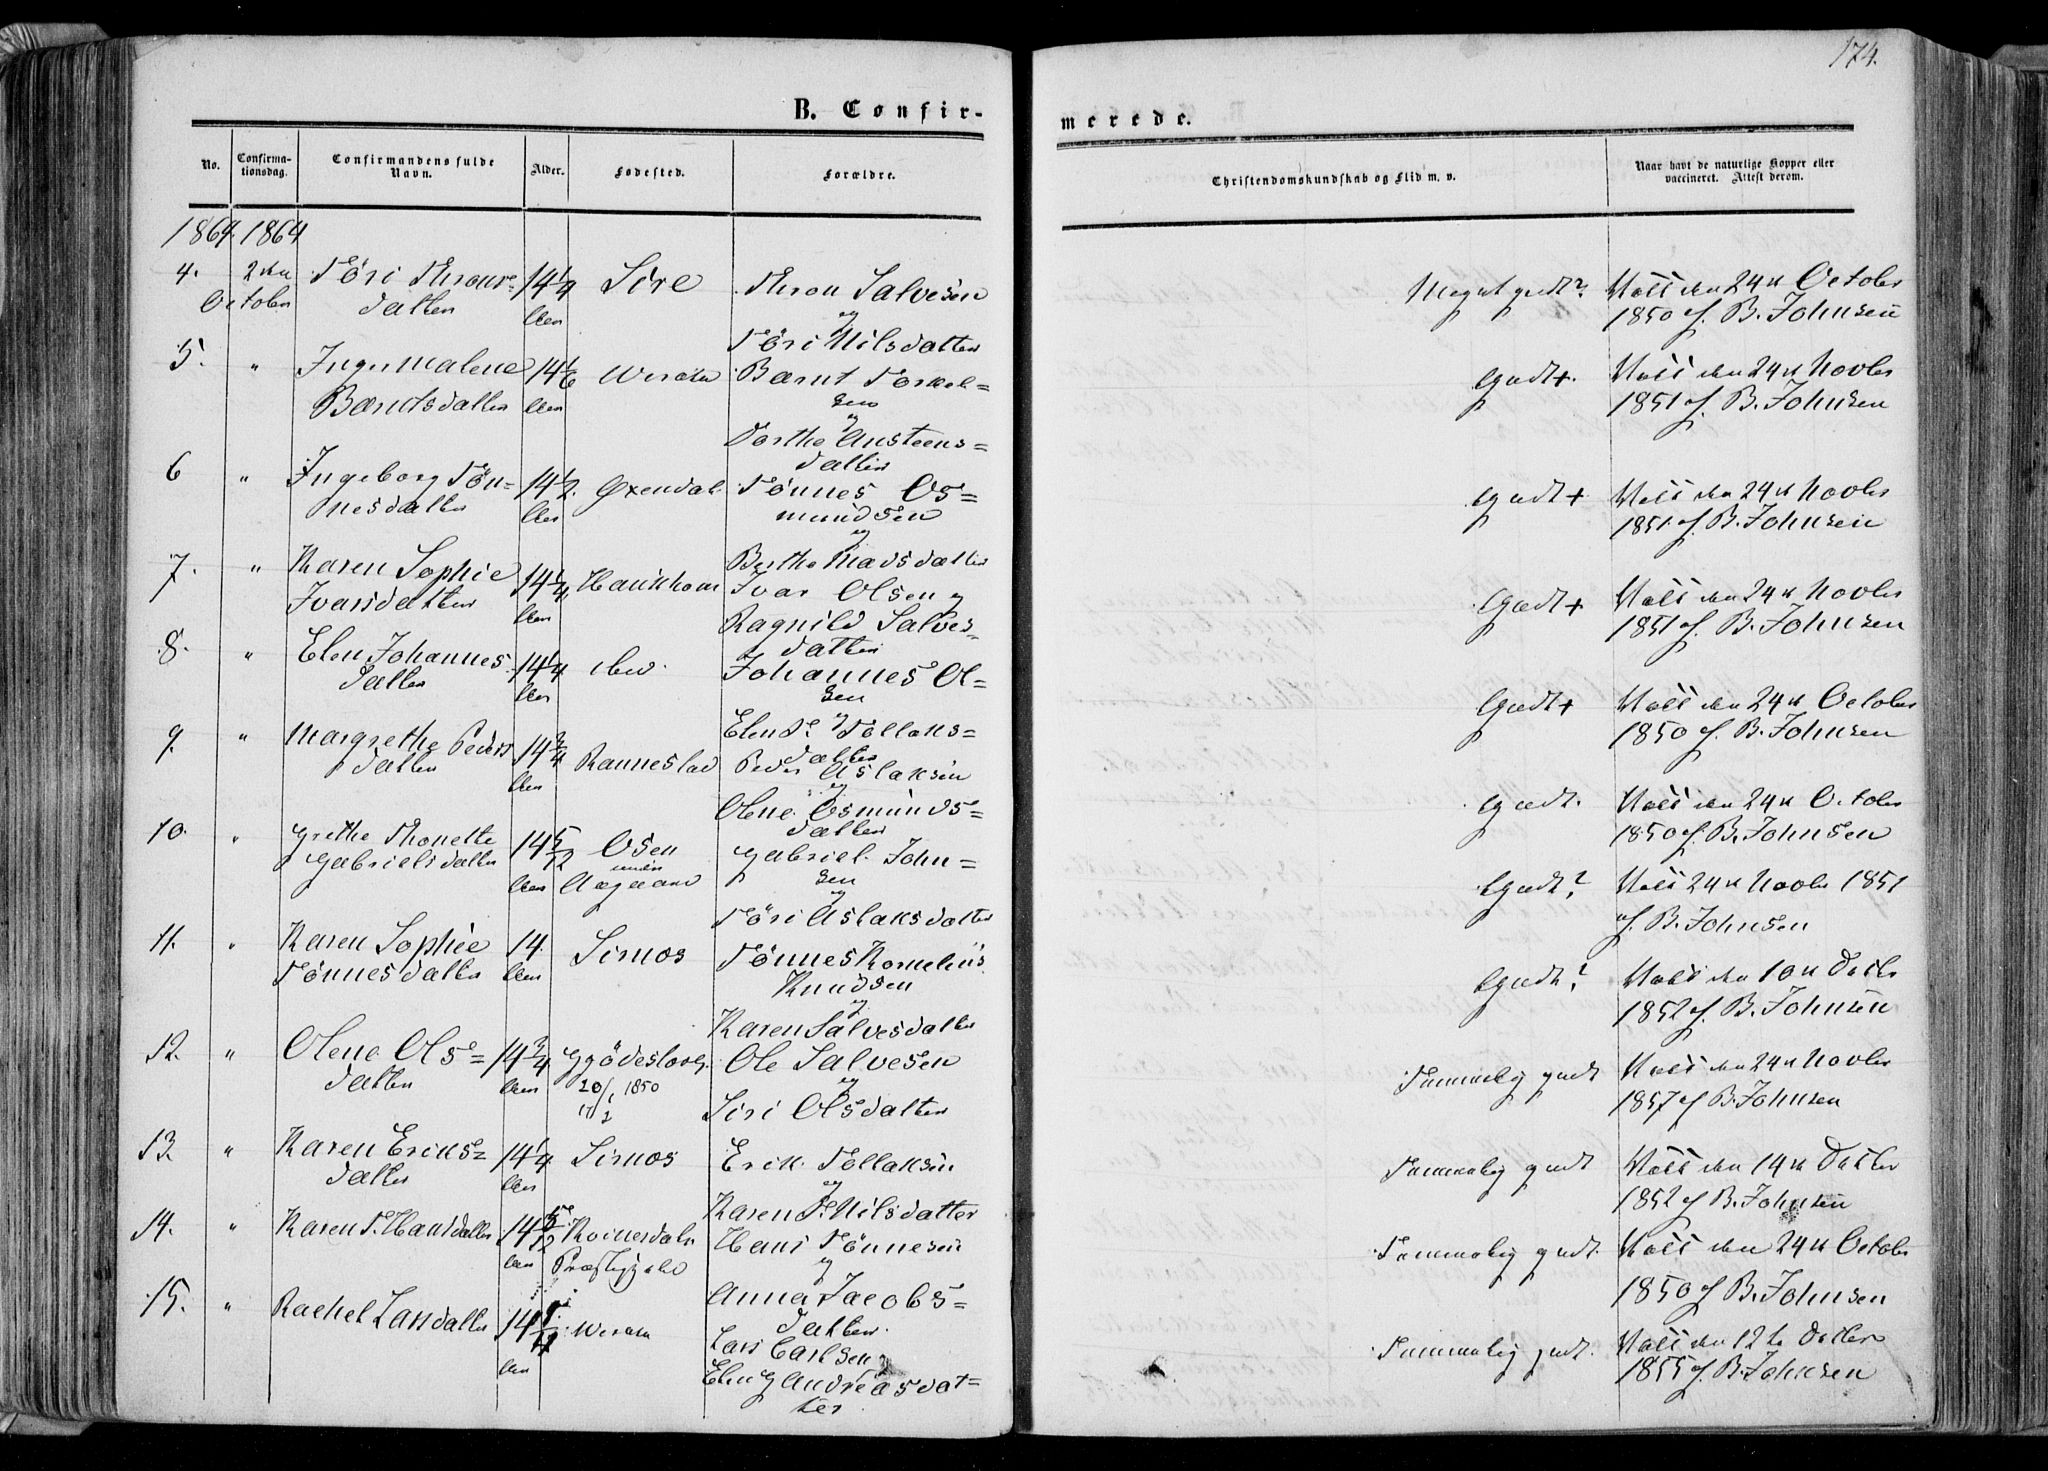 174.
B. Confir-
merede.
No.
Confirma-
tionsdag.
Confirmandens fulde
Navn.
Alder.
Fødested.
Forældre.
Christendomskundskab og Flid m. v.
Naar havt de naturlige Kopper eller
vaccineret. Attest derom.
1864. 1864
4. 2den October Töri Throns=
datter 14 1/4 Aar Sire Thron Salvesen
og
Töri Nilsdatter Meget godt? Vacc den 24de October
1850 af B. Johnsen
5. " Inger Malene
Berntsdatter 14 1/6 Aar Bernt Torkel=
sen
og
Dorthe Austeens=
datter Godt+ Vacc den 24de Novbr
1851 af B. Johnsen
6 " Ingeborg Tön=
nesdatter 14 1/2 Aar Øxendal Tönnes Os=
mundsen
og
Berthe Madsdatter Godt+ Vacc den 24de Novbr
1851 af B. Johnsen
7. " Karen Sophie
Ivarsdatter 14 1/4 Aar Haukhom Ivar Olsen og
Ragnild Salves=
datter Godt+ Vacc den 24de Novbr
1851 af B. Johnsen
8. " Elen Johannes
datter 14 1/4 Aar ibid. Johannes Ol=
sen
og
Elen T. Tollaks=
datter Godt+ Vacc den 24de October
1850 af B. Johnsen
9. " Margrethe Peders
datter 14 3/4 Aar Rannestad Peder Aslaksen
og
Olene Osmunds=
datter Godt. Vacc den 24de October
1850 af B. Johnsen
10. " Grethe Thonette
Gabrielsdatter 14 5/12 Aar Osen
under
Aagaard Gabriel John=
sen
og
Töri Aslaksdatter Godt? Vacc 24de Novbr 1851
af B. Johnsen
11. " Karen Sophie
Tönnesdatter 14. Aar Sirnos Tönnes Kornelius
Knudsen
og
Karen Salvesdatter Godt? Vacc den 10de Decbr
1852 af B. Johnsen
12. " Olene Ols=
datter 14 3/4 Aar 1850 Ole Salvesen
og
Siri Olsdatter Temmelig godt Vacc den 24de Novbr
1857 af B. Johnsen
13. " Karen Eriks=
datter 14 1/4 Aar Sirnos Erik Tollaksen
og
Karen T. Nilsdatter Temmelig godt Vacc den 14de Decbr
1852 af B. Johnsen
14. " Karen T. Hansdatter Aar Præstegjeld Hans Tönnesen
og
Anna Jacobs=
datter Temmelig godt. Vacc den 24de October
1850 af B. Johnsen
15. " Rachel Larsdatter Aar Lars Carlsen
Elen G Andreasdat=
ter Temmelig godt. Vacc den 12te Decbr
1855 af B. Johnsen